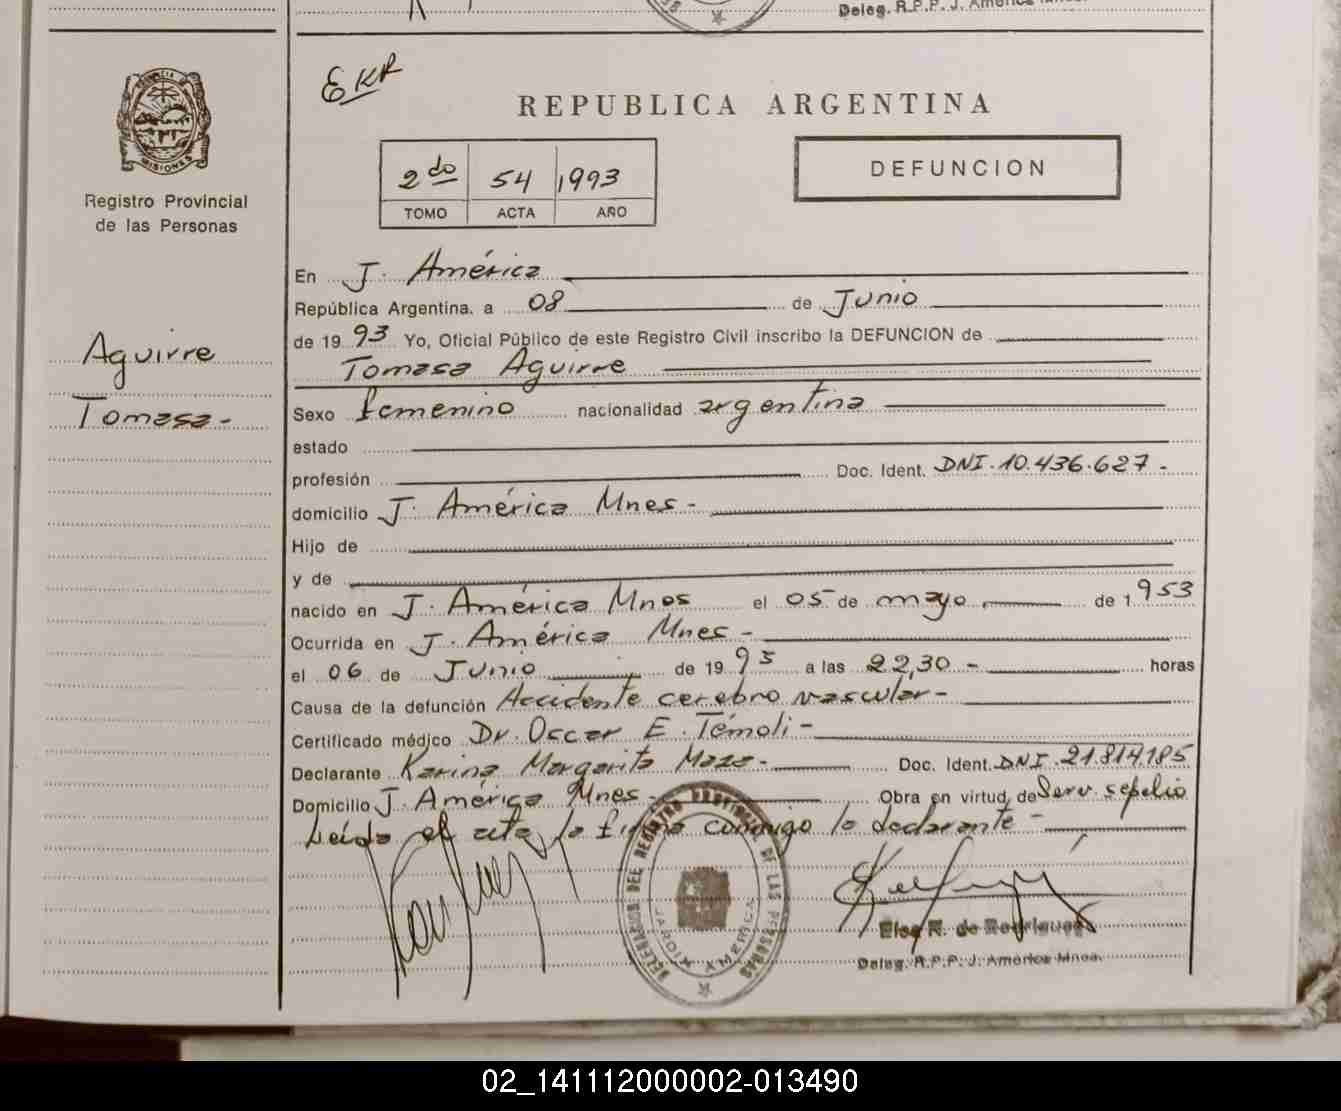 Deleg. R.P.P. J. América Mnes.
EKR
REPUBLICA ARGENTINA
PROVINCIA DE
MISIONES
Registro Provincial
de las Personas
2do 54 1993
TOMO ACTA AÑO
DEFUNCION
Aguirre
Tomasa-
En J. América
República Argentina, a 08 de Junio
de 1993 Yo, Oficial Público de este Registro Civil inscribo la DEFUNCION de
Tomasa Aguirre
Sexo femenino nacionalidad argentina
estado
profesión Doc. Ident. DNI.10.436.627.-
domicilio J. América Mnes-
Hijo de
y de
nacido en J. América Mnes el 05 de mayo de 1953
Ocurrida en J. América Mnes-
el 06 de Junio de 1993 a las 22,30- horas
Causa de la defunción Accidente cerebro vascular-
Certificado médico Dr. Oscar E. Témoli-
Declarante Karina Margarita Maza- Doc. Ident. DNI.21.814.185
Domicilio J. América Mnes- Obra en virtud de Serv. sepelio
Leída el acta la firma conmigo la declarante-
DELEGACION DEL REGISTRO PROVINCIAL DE LAS PERSONAS
JARDIN AMERICA
Elsa R. de Rodriguez
Deleg. R.P.P. J. América Mnes.
02_141112000002-013490